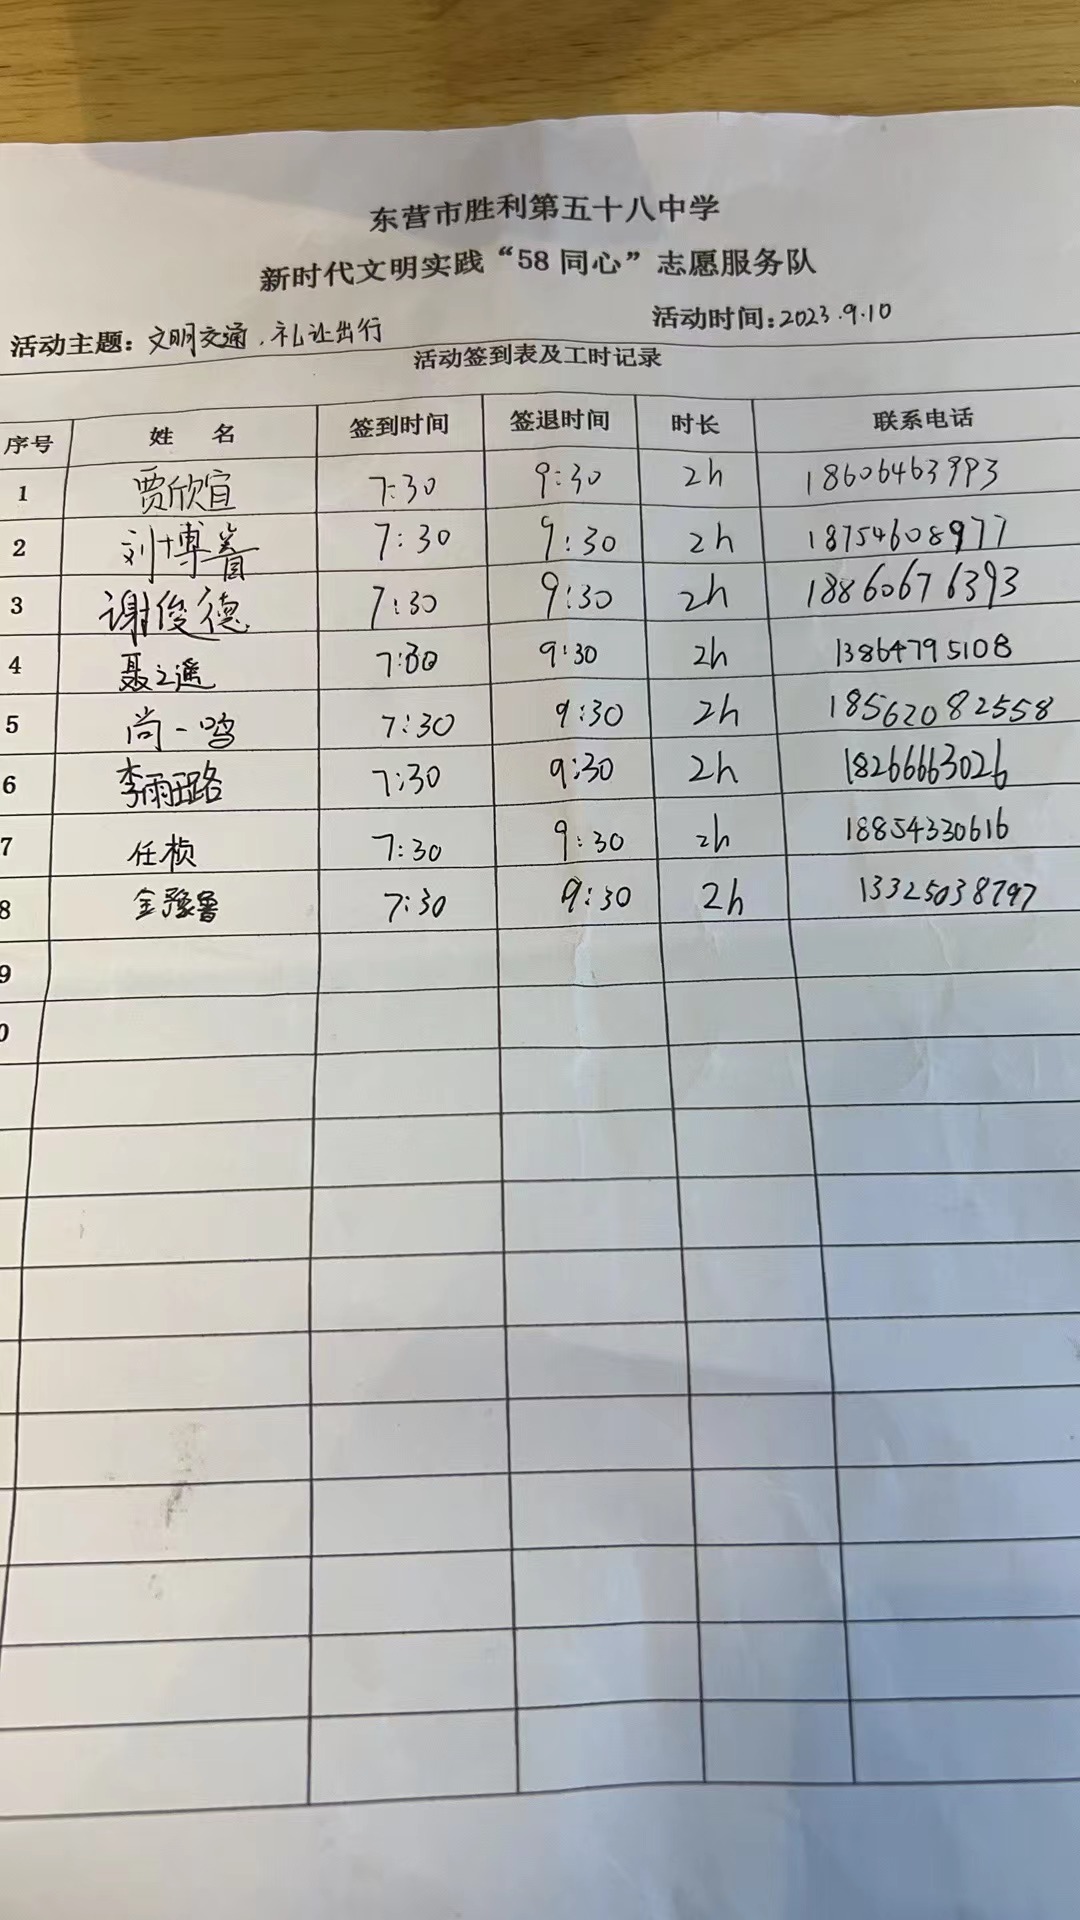 东营市胜利第五十八中学
新时代文明实践“58 同心”志愿服务队
活动主题：文明交通，礼让出行 活动时间：2023.9.10
活动签到表及工时记录
序号 姓 名 签到时间 签退时间 时长 联系电话
1 贾欣宜 7:30 9:30 2h 18606463993
2 刘博 7:30 9:30 2h 18754608977
3 谢俊德 7:30 9:30 2h 18860676393
4 聂之遥 7:30 9:30 2h 13864795108
5 尚一鸣 7:30 9:30 2h 18562082558
6 李雨璐 7:30 9:30 2h 18266663026
7 任桢 7:30 9:30 2h 18854330616
8 金豫鲁 7:30 9:30 2h 13325038797
9
0